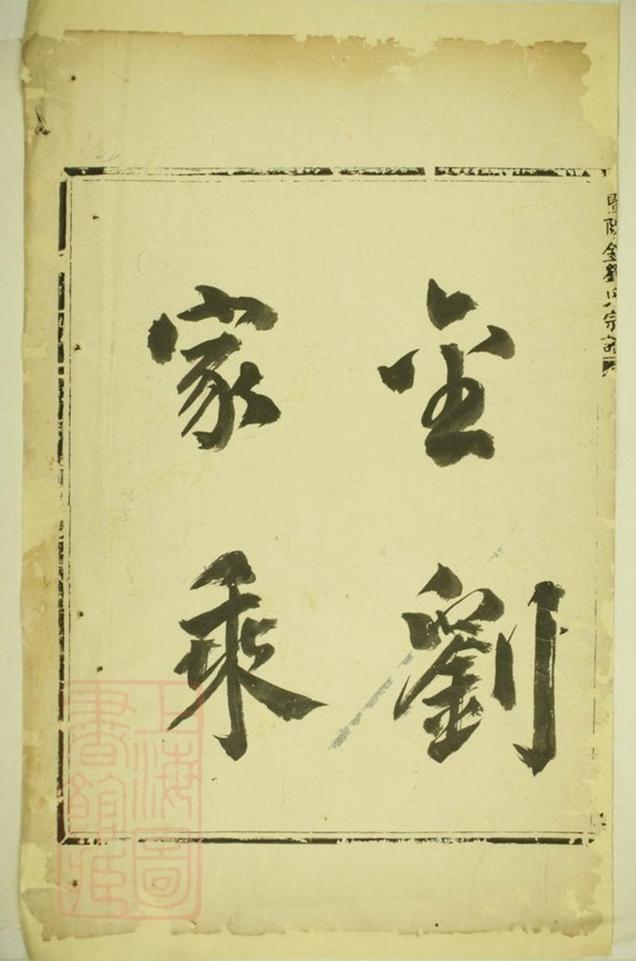 金劉
家乘
暨陽金劉氏宗譜
上海圖
書館藏